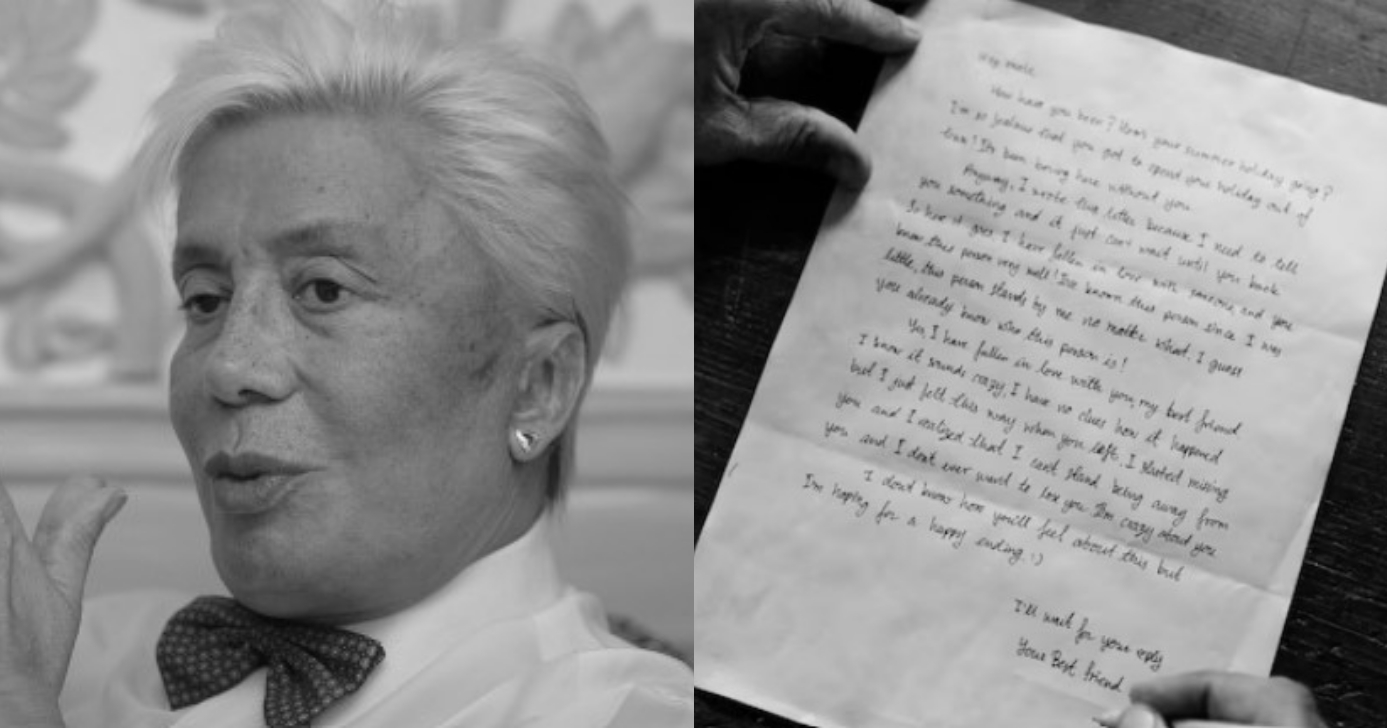 How have you been? How's your summer holiday going?
I'm so jealous that you got to spend your holiday out of
town! Its been boring here without you
Anyway, I wrote this letter because I need to tell
you something and it just can't wait until you back
So here it goes I have fallen in love with someone, and you
know this person very well! I've known this person since I was
little, this person stands by me no matter what. I guess
you already know who this person is!
Yes, I have fallen in love with you, my best friend
I know it sounds crazy, I have no clues how it happened
but I just felt this way when you left. I started missing
you and I realized that I can't stand being away from
you and I don't ever want to lose you I'm crazy about you
I don't know how you'll feel about this but
I'm hoping for a happy ending :)
I'll wait for your reply
Your Best friend